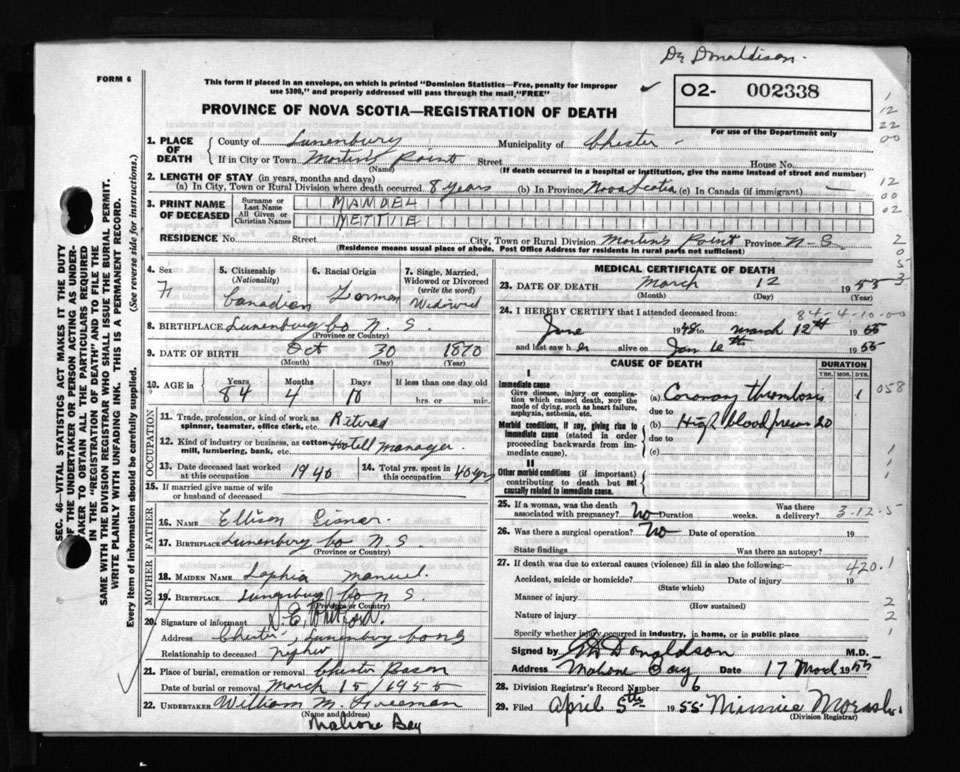 Dr Donaldison.
FORM 6
This form if placed in an envelope, on which is printed "Dominion Statistics—Free, penalty for improper
use $300," and properly addressed will pass through the mail, "FREE"
O2- 002338
For use of the Department only
PROVINCE OF NOVA SCOTIA—REGISTRATION OF DEATH
1. PLACE OF DEATH
County of Lunenburg Municipality of Chester
If in City or Town Martin's Point Street House No.
(Name) (If death occurred in a hospital or institution, give the name instead of street and number)
2. LENGTH OF STAY (in years, months and days)
(a) In City, Town or Rural Division where death occurred 8 years (b) In Province Nova Scotia (c) In Canada (if immigrant) —
3. PRINT NAME OF DECEASED
Surname or Last Name MANDEL
All Given or Christian Names NETTIE
RESIDENCE No. Street City, Town or Rural Division Martin's Point Province N-S
(Residence means usual place of abode. Post Office Address for residents in rural parts not sufficient)
4. Sex F
5. Citizenship (Nationality) Canadian
6. Racial Origin German
7. Single, Married, Widowed or Divorced (write the word) Widowed
8. BIRTHPLACE Lunenburg Co N. S.
(Province or Country)
9. DATE OF BIRTH Oct 30 1870
(Month) (Day) (Year)
10. AGE in Years 84 Months 4 Days 10 If less than one day old hrs. or min.
OCCUPATION
11. Trade, profession, or kind of work as spinner, teamster, office clerk, etc. Retired
12. Kind of industry or business, as cotton mill, lumbering, bank, etc. Hotell manager
13. Date deceased last worked at this occupation 1940
14. Total yrs. spent in this occupation 40 yrs
15. If married give name of wife or husband of deceased
FATHER
16. NAME Ellison Eisner.
17. BIRTHPLACE Lunenburg Co N. S
(Province or Country)
MOTHER
18. MAIDEN NAME Sophia
19. BIRTHPLACE Lunenburg Co N. S.
(Province or Country)
20. Signature of informant
Address Chester, Lunenburg Co N S
Relationship to deceased nephew
21. Place of burial, cremation or removal Chester
Date of burial or removal March 15/1955
22. UNDERTAKER William M.
(Name and Address)
Mahone Bay
MEDICAL CERTIFICATE OF DEATH
23. DATE OF DEATH March 12 1955
(Month) (Day) (Year)
84-4-10-00
24. I HEREBY CERTIFY that I attended deceased from:
June 1948 to March 12th 1955
and last saw her alive on Jan 1955
CAUSE OF DEATH
DURATION
YRS. MOS. DYS.
I
Immediate cause
Give disease, injury or complication which caused death, not the mode of dying, such as heart failure, asphyxia, asthenia, etc.
(a) Coronary thrombosis 1
due to
Morbid conditions, if any, giving rise to immediate cause (stated in order proceeding backwards from immediate cause).
(b) High blood pressure 20
due to
(c)
II
Other morbid conditions (if important) contributing to death but not causally related to immediate cause.
058
25. If a woman, was the death associated with pregnancy? No Duration weeks. Was there a delivery?
3-12-5
26. Was there a surgical operation? No Date of operation 19
State findings Was there an autopsy?
27. If death was due to external causes (violence) fill in also the following:—
420.1
Accident, suicide or homicide? Date of injury 19
(State which)
Manner of injury
(How sustained)
Nature of injury
Specify whether injury occurred in industry, in home, or in public place
Signed by Donaldson M.D.
Address Mahone Bay Date 17 March 1955
28. Division Registrar's Record Number 6
29. Filed April 5th 1955 Minnie
(Division Registrar)
SEC. 46—VITAL STATISTICS ACT MAKES IT THE DUTY
OF THE UNDERTAKER OR PERSON ACTING AS UNDER-
TAKER TO OBTAIN ALL THE PARTICULARS REQUIRED
IN THE "REGISTRATION OF DEATH" AND TO FILE THE
SAME WITH THE DIVISION REGISTRAR WHO SHALL ISSUE THE BURIAL PERMIT.
WRITE PLAINLY WITH UNFADING INK. THIS IS A PERMANENT RECORD.
Every item of information should be carefully supplied. (See reverse side for instructions.)
1
12
22
00
12
00
02
2
0
5
3
1
1
1
2
2
1